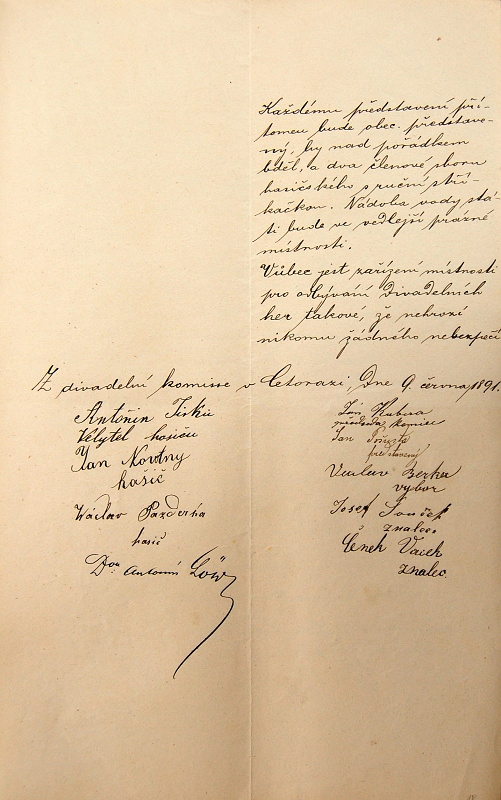 Každému představení pří-
tomen bude obec. představe-
ný, by nad pořádkem
bděl, a dva členové sboru
hasičského s ruční stří-
kačkou. Nádoba vody stá-
ti bude ve vedlejší prázné
místnosti.
Vůbec jest zařízení místnosti
pro odbývání divadelních
her takové, že nehrozí
nikomu žádného nebezpečí
Z divadelní komisse v Cetorazi, Dne 9. června 1891.
Antonín
Velytel hasičů
Jan Novotny
hasič
Václav Pazderka
hasič
Dor. Antonín Löw
Jan Kubna
předseda komise
Jan
představený
Vaclav Berka
výbor
Josef Souček
znalec
Čeněk Vacek
znalec